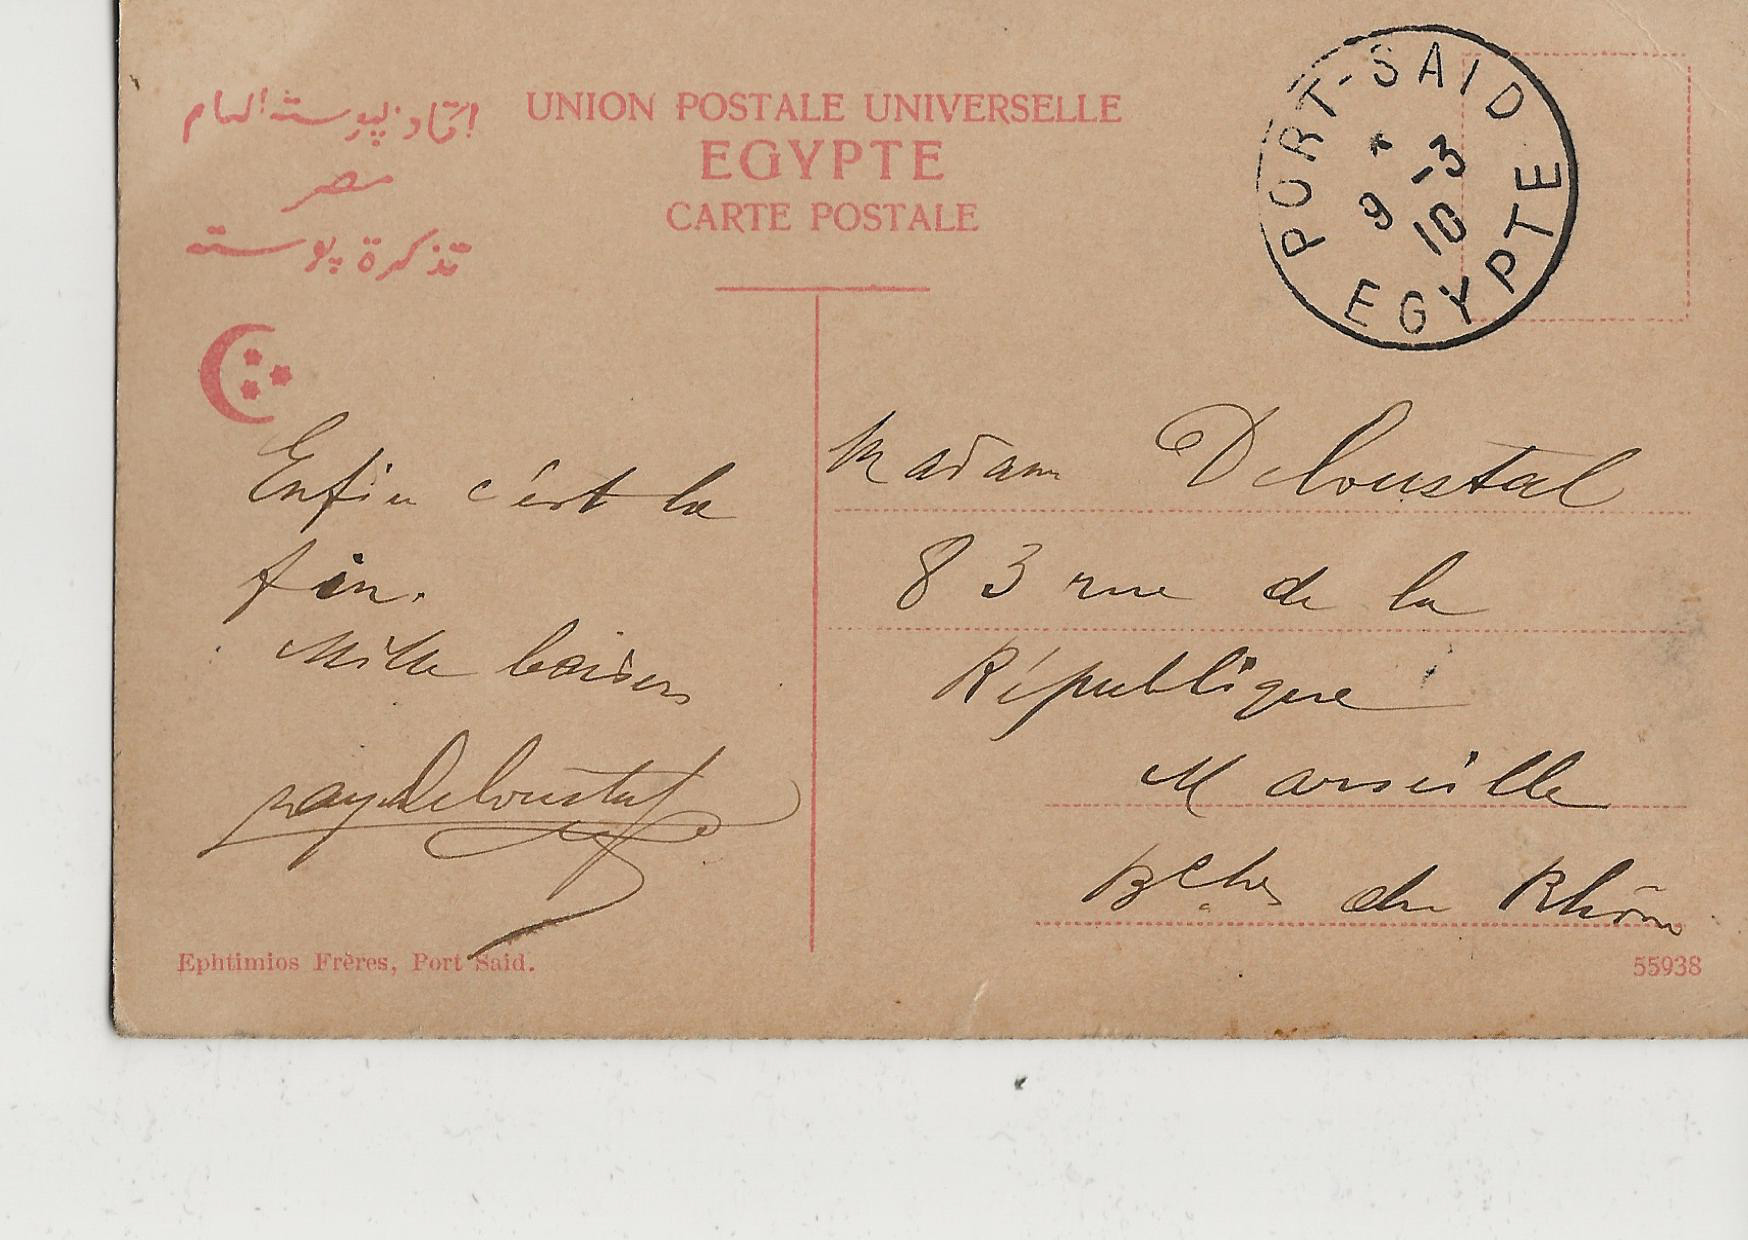 اتحاد پوسته العام
مصر
تذكرة پوسته
UNION POSTALE UNIVERSELLE
EGYPTE
CARTE POSTALE
PORT-SAID
* 9 -3 10
EGYPTE
Enfin c'est la
fin.
Mille baisers
RayDeloustal
Madame Deloustal
83 rue de la
République
Marseille
Bches du Rhône
Ephtimios Frères, Port Said.
55938